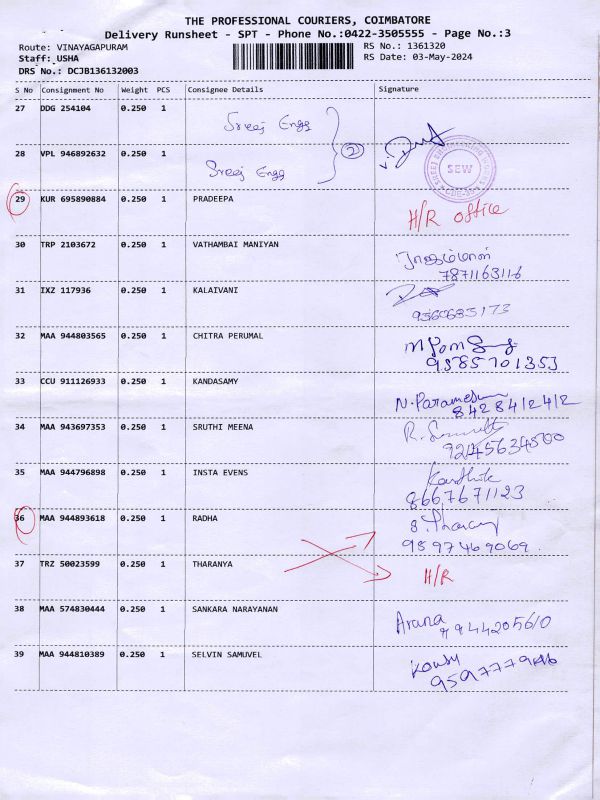 THE PROFESSIONAL COURIERS, COIMBATORE
Delivery Runsheet - SPT - Phone No.:0422-3505555 - Page No.:3
Route: VINAYAGAPURAM RS No.: 1361320
Staff: USHA RS Date: 03-May-2024
DRS No.: DCJB136132003
S No Consignment No Weight PCS Consignee Details Signature
27 DDG 254104 0.250 1 Sreej Engg
28 VPL 946892632 0.250 1 Sreej Engg
2
SEW
29 KUR 695890884 0.250 1 PRADEEPA H/R office
30 TRP 2103672 0.250 1 VATHAMBAI MANIYAN
7871163116
31 IXZ 117936 0.250 1 KALAIVANI
9560685173
32 MAA 944803565 0.250 1 CHITRA PERUMAL
9585701353
33 CCU 911126933 0.250 1 KANDASAMY N. Paramesh
8428412412
34 MAA 943697353 0.250 1 SRUTHI MEENA
35 MAA 944796898 0.250 1 INSTA EVENS Karthik
8667671123
36 MAA 944893618 0.250 1 RADHA
9597469069
37 TRZ 50023599 0.250 1 THARANYA H/R
38 MAA 574830444 0.250 1 SANKARA NARAYANAN Aruna
9944205610
39 MAA 944810389 0.250 1 SELVIN SAMUVEL